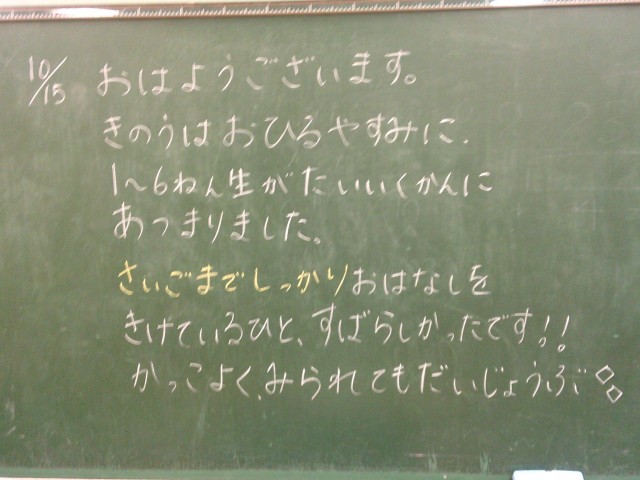 10/15 おはようございます。
きのうはおひるやすみに、
1～6ねん生がたいいくかんに
あつまりました。
さいごまでしっかりおはなしを
きけているひと、すばらしかったです!!
かっこよく、みられてもだいじょうぶ◇◇